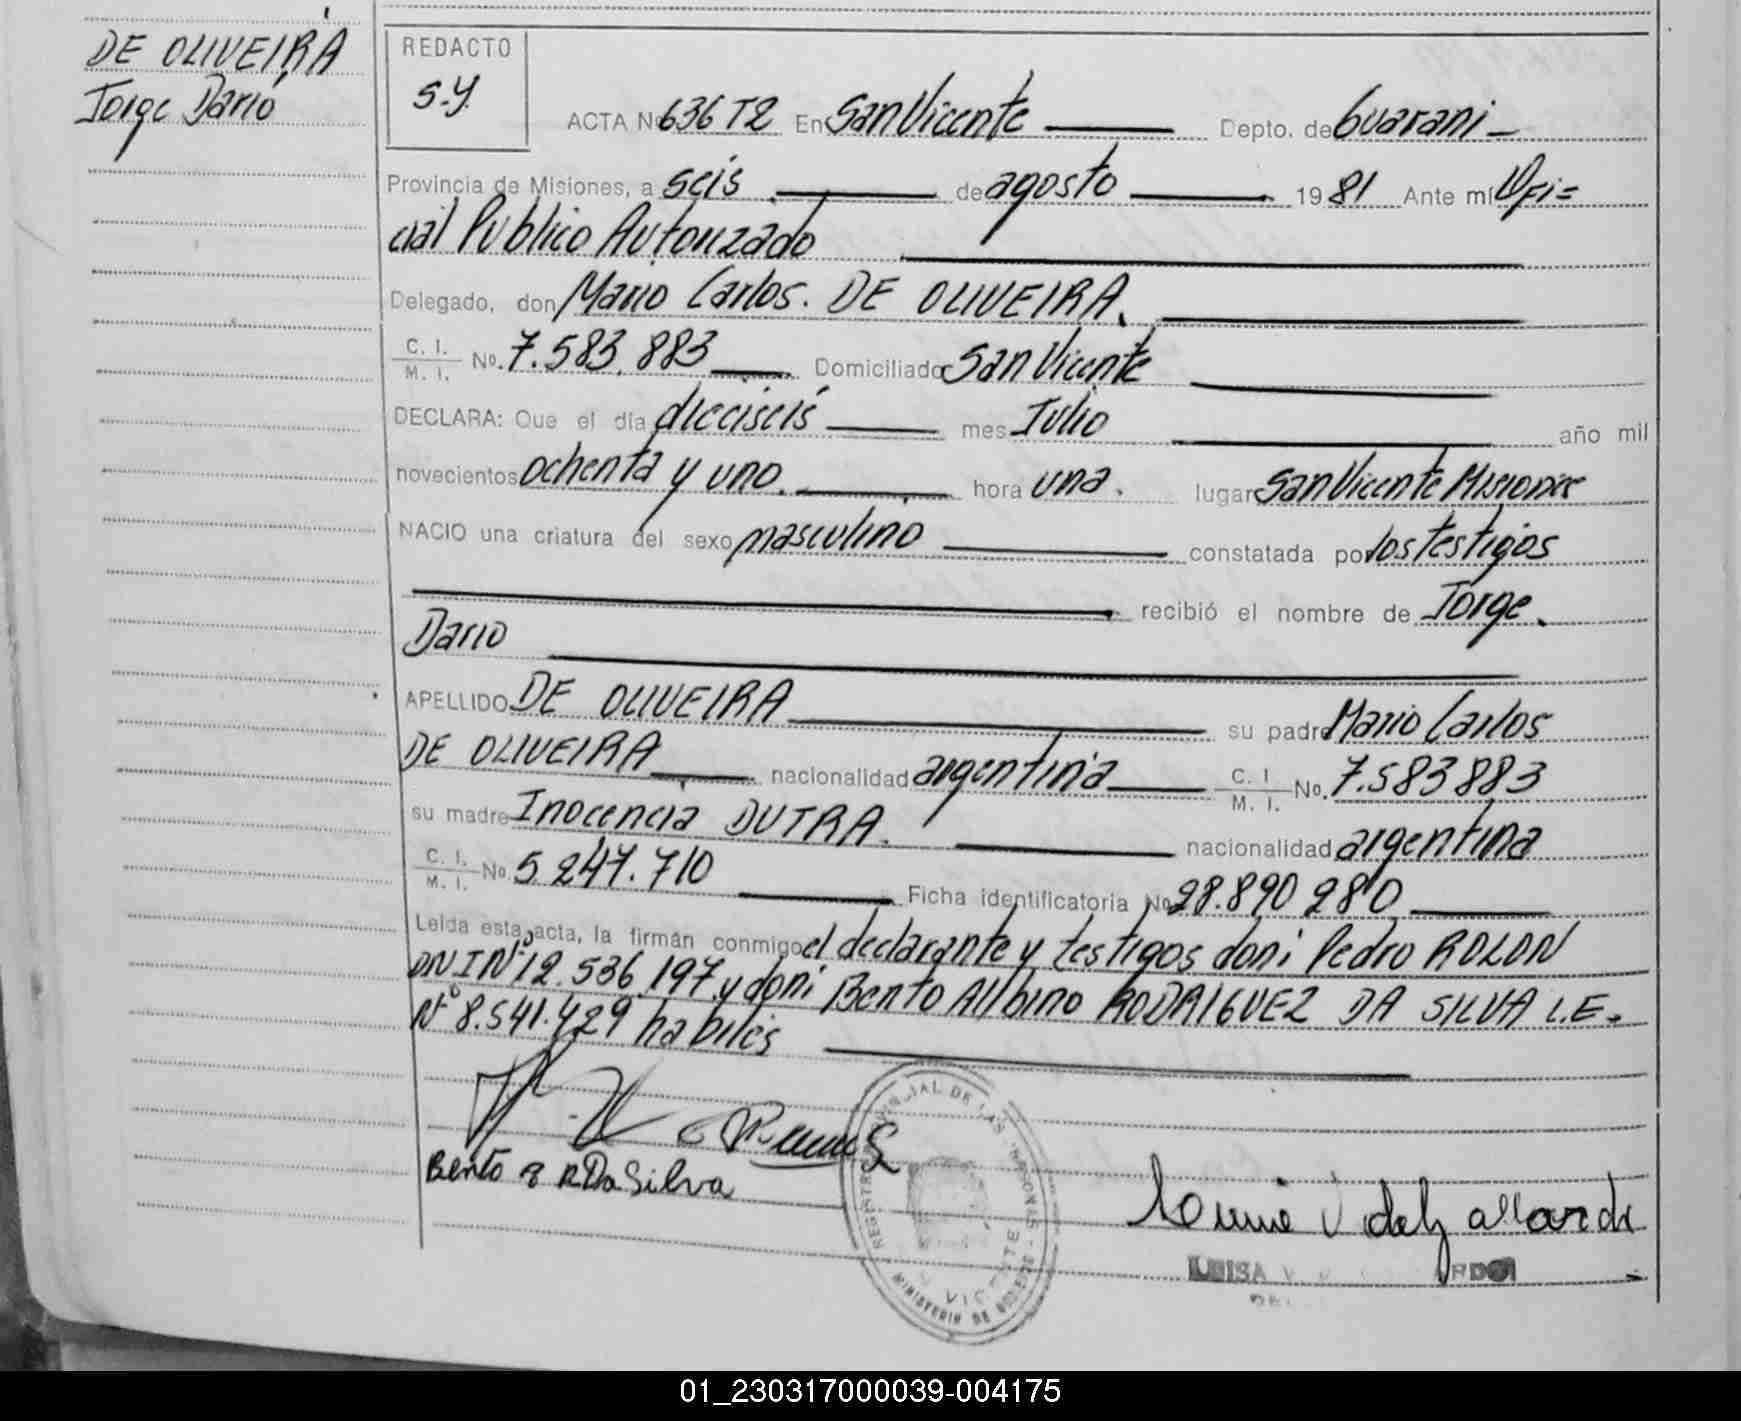 DE OLIVEIRA
Jorge Dario
REDACTO
S.Y.
ACTA Nº 636 T2 En San Vicente Depto. de Guarani
Provincia de Misiones, a seis de agosto 1981 Ante mí Ofi=
cial Publico Autorizado
Delegado, don Mario Carlos. DE OLIVEIRA.
C. I. / M. I. No. 7.583.883 Domiciliado San Vicente
DECLARA: Que el día dieciseis mes Julio año mil
novecientos ochenta y uno. hora una. lugar San Vicente Misiones
NACIO una criatura del sexo masculino constatada por los testigos
recibió el nombre de Jorge.
Dario
APELLIDO DE OLIVEIRA su padre Mario Carlos
DE OLIVEIRA nacionalidad argentina C. I. / M. I. No. 7.583883
su madre Inocencia DUTRA. nacionalidad argentina
C. I. / M. I. No. 5.247.710 Ficha identificatoria No 28.890 280
Leída esta acta, la firman conmigo el declarante y testigos don: Pedro ROLON
DNI Nº 12.536.197 y don: Bento Albino RODRIGUEZ DA SILVA L.E.
Nº 8.541.429 habiles
Bento R DaSilva
REGISTRO PROVINCIAL DE LAS PERSONAS
MINISTERIO DE GOBIERNO
VICENTE
LUISA
01_230317000039-004175